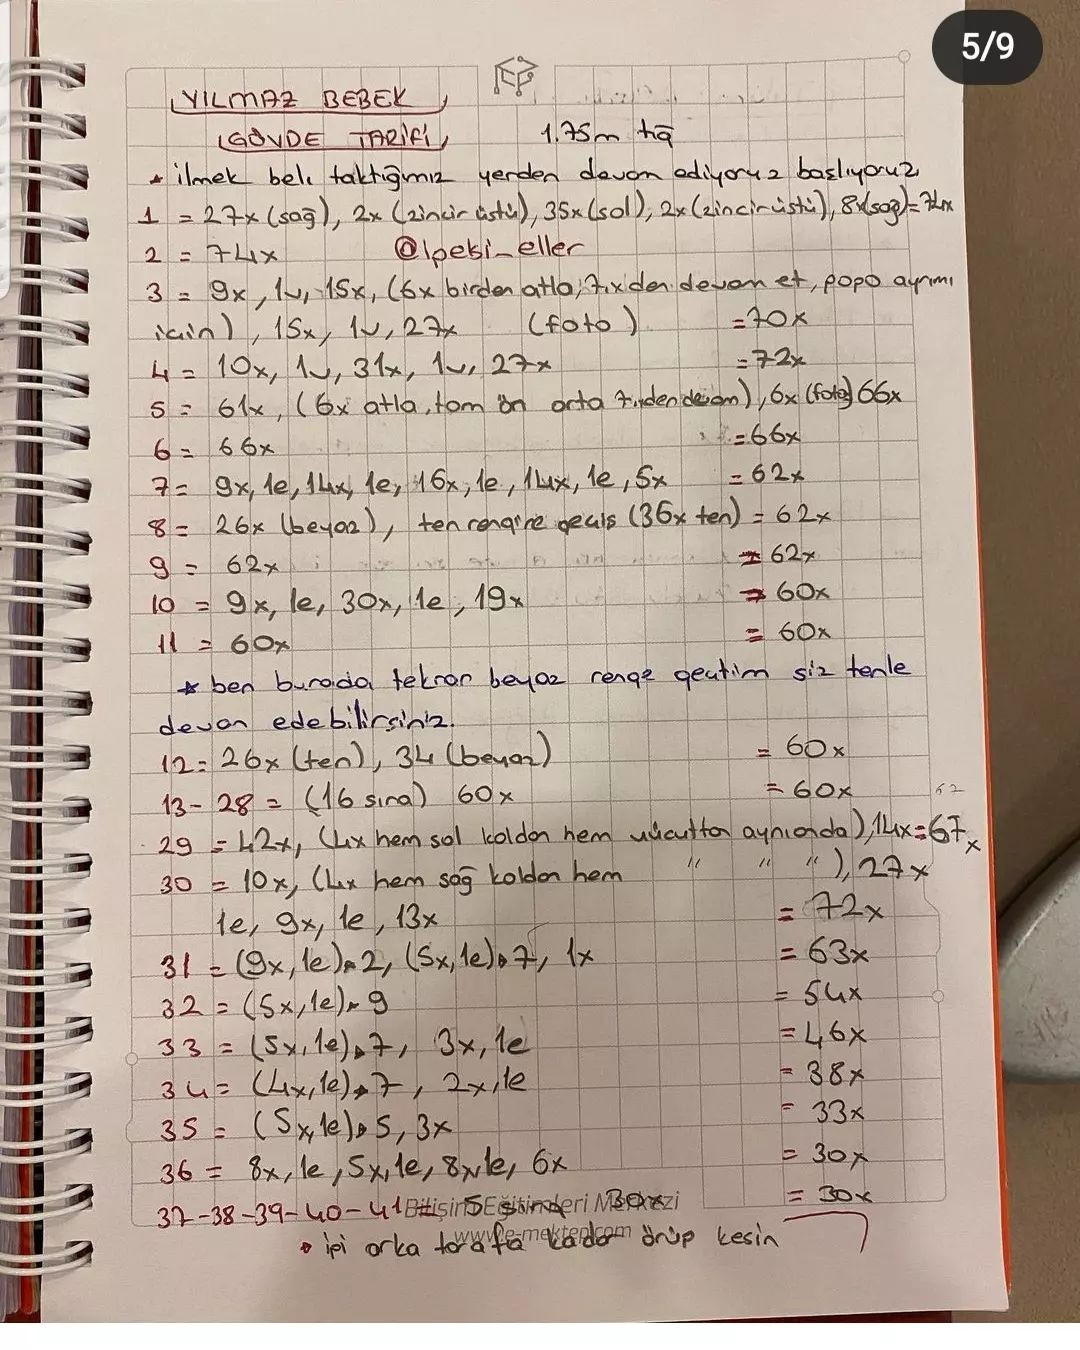 5/9
YILMAZ BEBEK
GÖVDE TARİFİ 1.75m tığ
* ilmek beli taktığımız yerden devam ediyoruz başlıyoruz
1 = 27x (sağ), 2x (zincir üstü), 35x (sol), 2x (zincir üstü), 8x (sağ) = 74x
2 = 74x @ipeksi_eller
3 = 9x, 1v, 15x, (6x birden atla, 7.x den devam et, popo ayrımı
için), 15x, 1v, 27x (foto) = 70x
4 = 10x, 1v, 31x, 1v, 27x = 72x
5 = 61x, (6x atla, tam ön orta 7.den devam), 6x (foto) 66x
6 = 66x = 66x
7 = 9x, 1e, 14x, 1e, 16x, 1e, 14x, 1e, 5x = 62x
8 = 26x (beyaz), ten rengine geçiş (36x ten) = 62x
9 = 62x = 62x
10 = 9x, 1e, 30x, 1e, 19x = 60x
11 = 60x = 60x
* ben burada tekrar beyaz renge geçtim siz tenle
devam edebilirsiniz.
12 = 26x (ten), 34 (beyaz) = 60x
13-28 = (16 sıra) 60x = 60x
62
29 = 42x, (4x hem sol koldan hem vücuttan aynı anda), 14x = 67x
30 = 10x, (4x hem sağ koldan hem " " "), 27x
1e, 9x, 1e, 13x = 72x
31 = (9x, 1e)*2, (5x, 1e)*7, 1x = 63x
32 = (5x, 1e)*9 = 54x
33 = (5x, 1e)*7, 3x, 1e = 46x
34 = (4x, 1e)*7, 2x, 1e = 38x
35 = (5x, 1e)*5, 3x = 33x
36 = 8x, 1e, 5x, 1e, 8x, 1e, 6x = 30x
37-38-39-40-41 = 5 sıra 30x = 30x
Bilişim Eğitimleri Merkezi
www.e-mektep.com
• ipi arka tarafa kadar örüp kesin